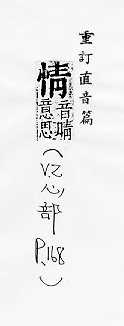 重訂直音篇
情 音晴 意思
(V.2心部 P.168)